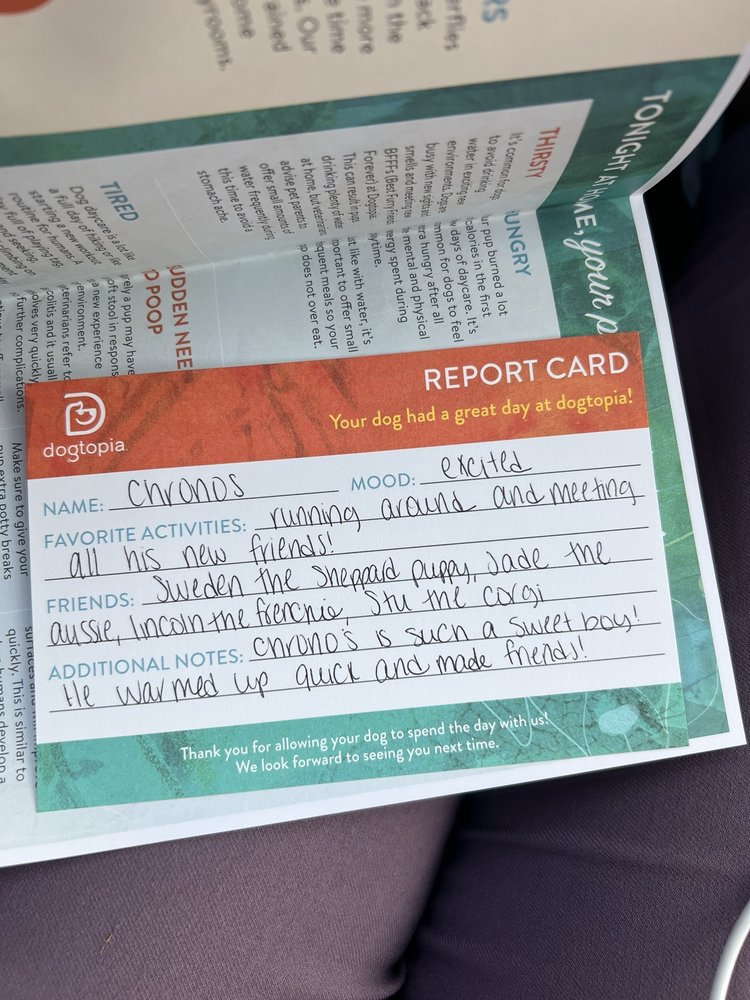 RS
erflies
ack
n the
more
e time
. Our
ained
ome
yrooms.
TONIGHT AT HOME, your p
THIRSTY
It's common for dogs
to avoid drinking
water in exciting new
environments. Dogs are
busy with new sights and
smells and meeting new
BFFFs (Best Furry Friends
Forever) at Dogtopia
This can result in pups
drinking plenty of water
at home, but veterinarians
advise pet parents to
offer small amounts of
water frequently during
this time to avoid a
stomach ache
UNGRY
ur pup burned a lot
calories in the first
w days of daycare. It's
mmon for dogs to feel
ra hungry after all
e mental and physical
ergy spent during
aytime.
st like with water, it's
portant to offer small
quent meals so your
p does not over eat.
TIRED
Dog daycare is a lot like
a full day of hiking or like
starting a new workout
routine for humans. A
UDDEN NEE
O POOP
rely a pup may have
oft stool in respons
a new experience
environment.
terinarians refer to
olitis and it usuall
olves very quickly
further complications.
Make sure to give your
pup extra potty breaks
quickly. This is similar to
humans develop a
dogtopia
REPORT CARD
Your dog had a great day at dogtopia!
NAME: Chronos MOOD: excited
FAVORITE ACTIVITIES: running around and meeting
all his new friends!
FRIENDS: Sweden the Sheppard puppy, Jade the
aussie, Lincoln the frenchie, Stu the corgi
ADDITIONAL NOTES: Chrono's is such a sweet boy!
He warmed up quick and made friends!
Thank you for allowing your dog to spend the day with us!
We look forward to seeing you next time.